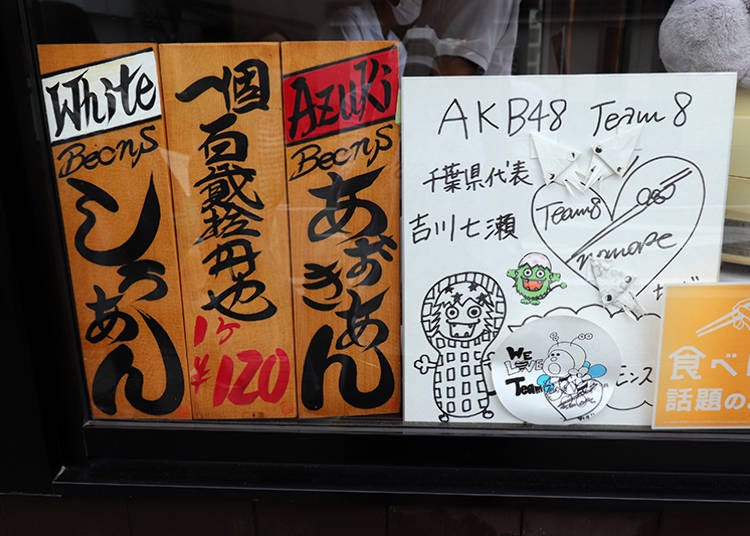 White
Becns
しろあん
一個
百貳拾円也
1ヶ
¥120
AzuKi
Becns
あずきあん
AKB48 Team 8
千葉県代表
吉川七瀬
Team8
nanase
WE
LOVE
Team
モンス
食べ
話題の